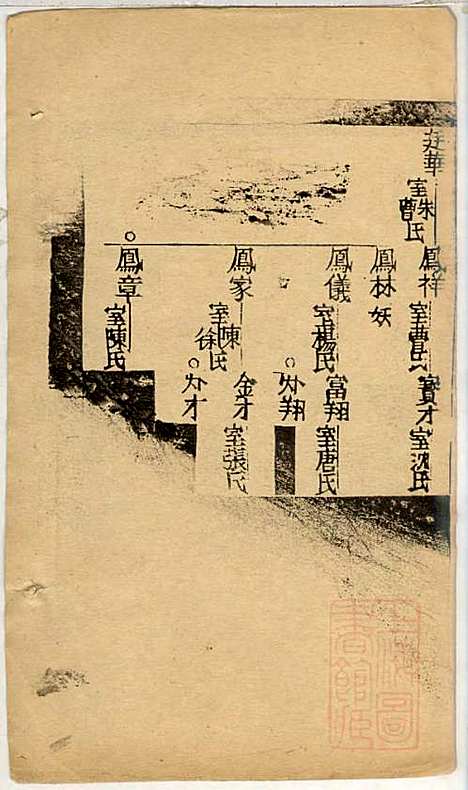 廷華
室朱曹氏
鳳祥
室曹氏
寶才
室沈氏
鳳林
妖
鳳儀
室楊氏
富翔
室唐氏
外翔
鳳家
室陳徐氏
金才
室張氏
外才
鳳章
室陳氏
上海圖
書館藏